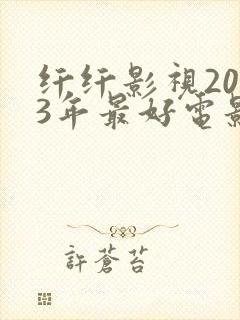 纤纤影視20
3年最好電影
許蒼苔